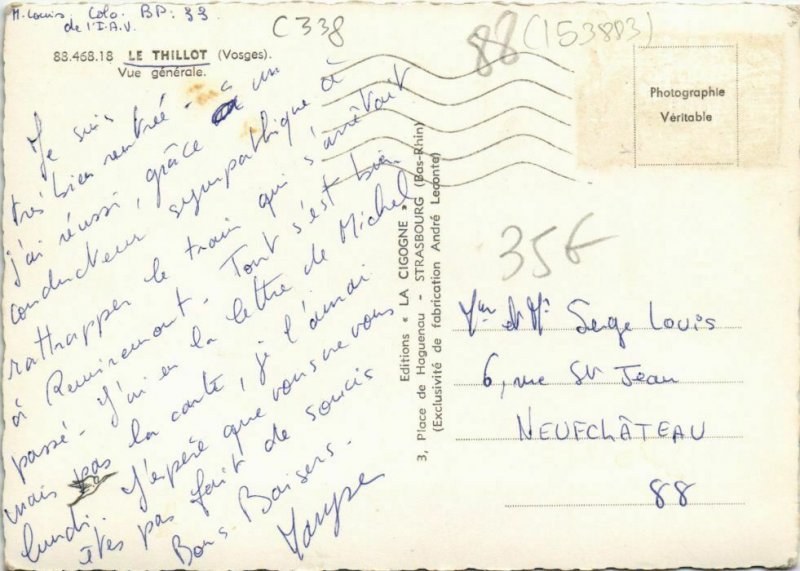 M. Louis Colo. BP: 33
de l'I.A.V.
C338
88
(153883)
83.468.18 LE THILLOT (Vosges).
Vue générale.
Photographie
Véritable
Je suis
très bien rentrée - à un
j'ai réussi, grâce
conducteur sympathique à
rattrapper le train qui s'arrêtait
à Remiremont. Tout s'est bien
passé. J'ai eu la lettre de Michel
mais pas la carte, je l'aurai
lundi. J'espère que vous ne vous
êtes pas fait de soucis
Bons Baisers.
Editions « LA CIGOGNE »
3, Place de Haguenau - STRASBOURG (Bas-Rhin)
(Exclusivité de fabrication André Leconte)
35F
Mme et Mr Serge Louis
6, rue St Jean
NEUFCHÂTEAU
88